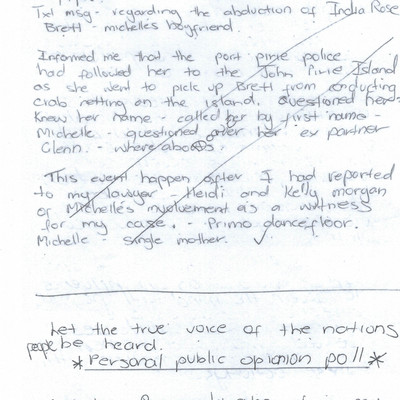 Txt msg - regarding the abduction of India Rose
Brett - michelles boyfriend.
Informed me that the port pirie police
had followed her to the John Pirie Island
as she went to pick up Brett from conducting
crab netting on the island. Questioned her -
Knew her name - called her by first name -
Michelle - questioned over her ex partner
Glenn. - where abouts.
This event happen after I had reported
to my lawyer - Heidi and Kelly morgan
of Michelle's involvement as a witness
for my case. - Primo dancefloor.
Michelle - single mother. ✓
Let the true voice of the nations
people be heard.
*Personal public opionion poll*